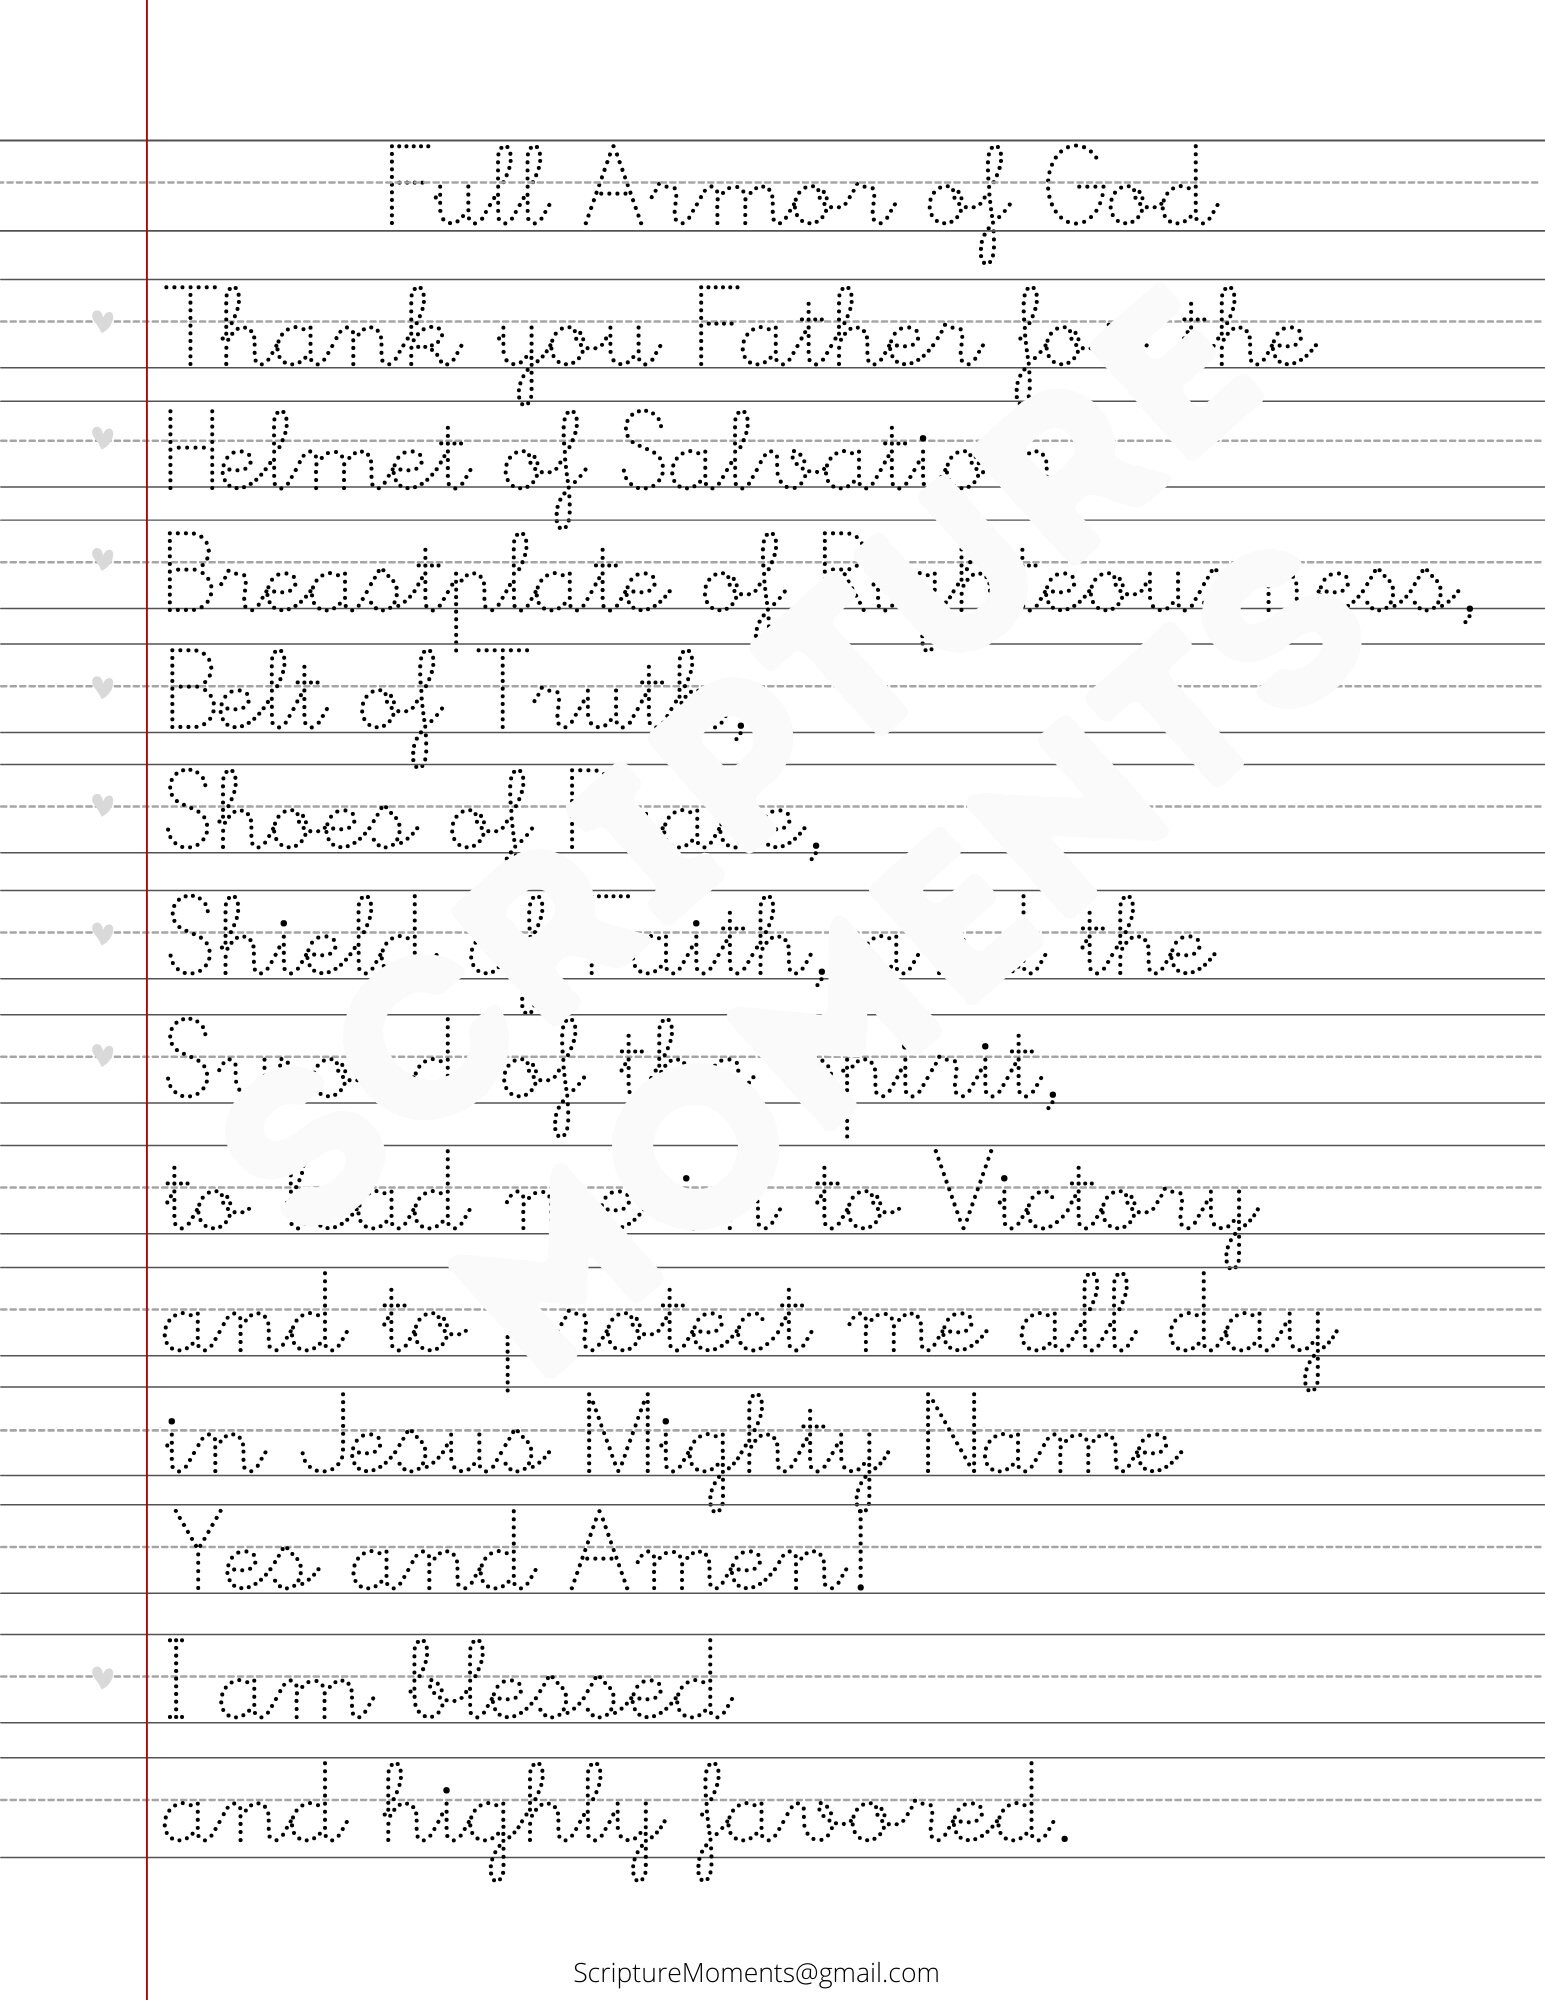 Full Armor of God
Thank you Father for the
Helmet of Salvation
Breastplate of Righteousness,
Belt of Truth,
Shoes of Peace,
Shield of Faith, and the
Sword of the Spirit,
to lead me on to Victory
and to protect me all day
in Jesus Mighty Name
Yes and Amen!
I am blessed
and highly favored.
SCRIPTURE
MOMENTS
ScriptureMoments@gmail.com